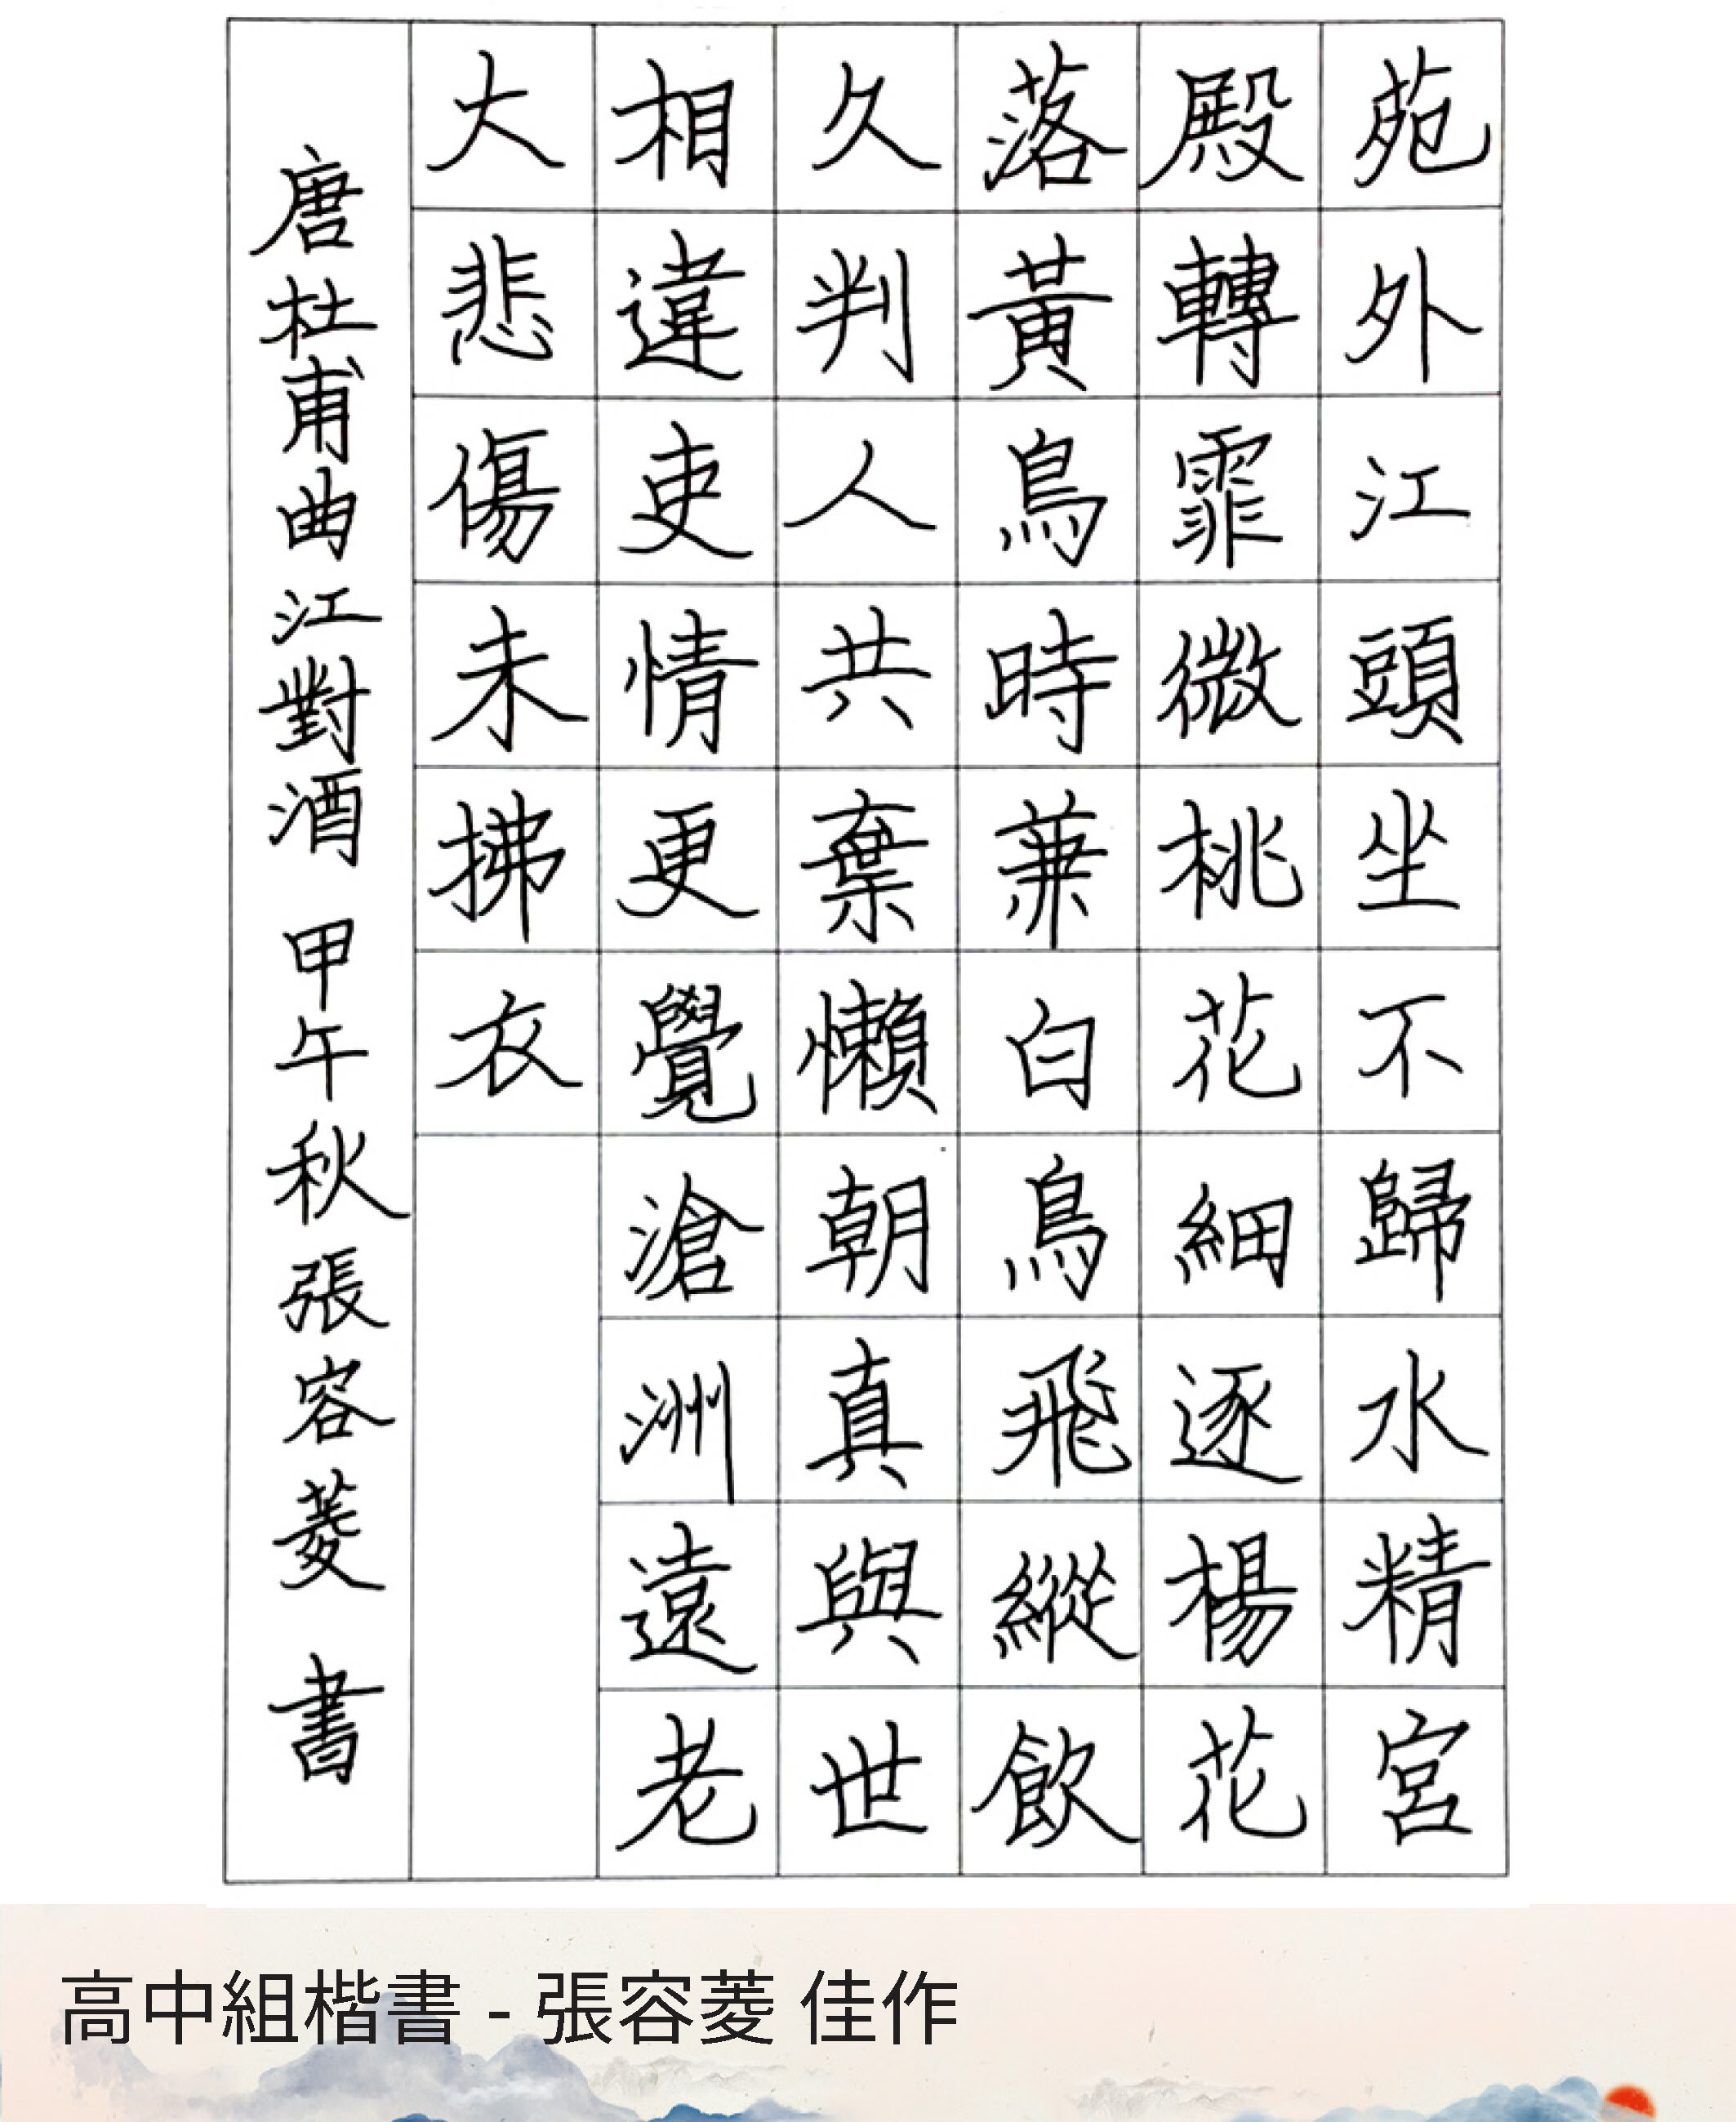 苑外江頭坐不歸水精宮
殿轉霏微桃花細逐楊花
落黃鳥時兼白鳥飛縱飲
久判人共棄懶朝真與世
相違吏情更覺滄洲遠老
大悲傷未拂衣
唐杜甫曲江對酒 甲午秋張容菱 書
高中組楷書 - 張容菱 佳作